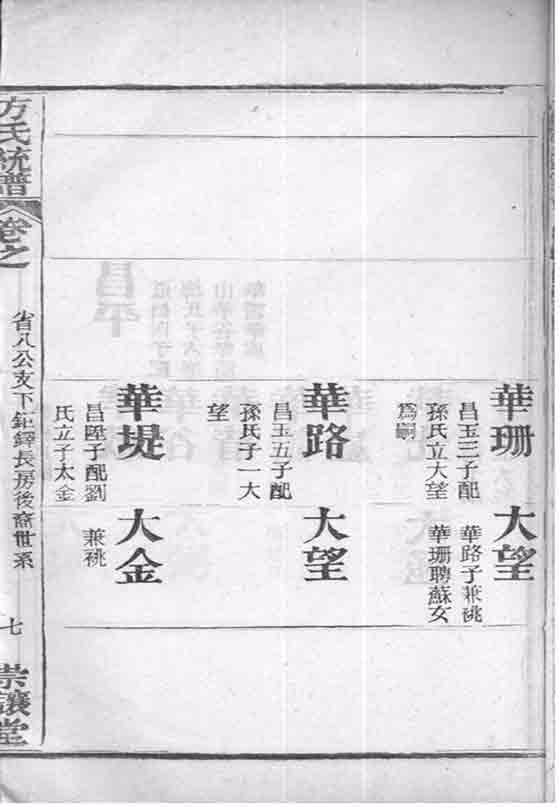 華珊
昌玉三子配
孫氏立大望
爲嗣
大望
華路子兼祧
華珊聘蘇女
華路
昌玉五子配
孫氏子一大
望
大望
華堤
昌陞子配劉
氏立子太金
大金
兼祧
方氏統譜
卷之
省八公支下鉅鐸長房後裔世系
七
崇讓堂